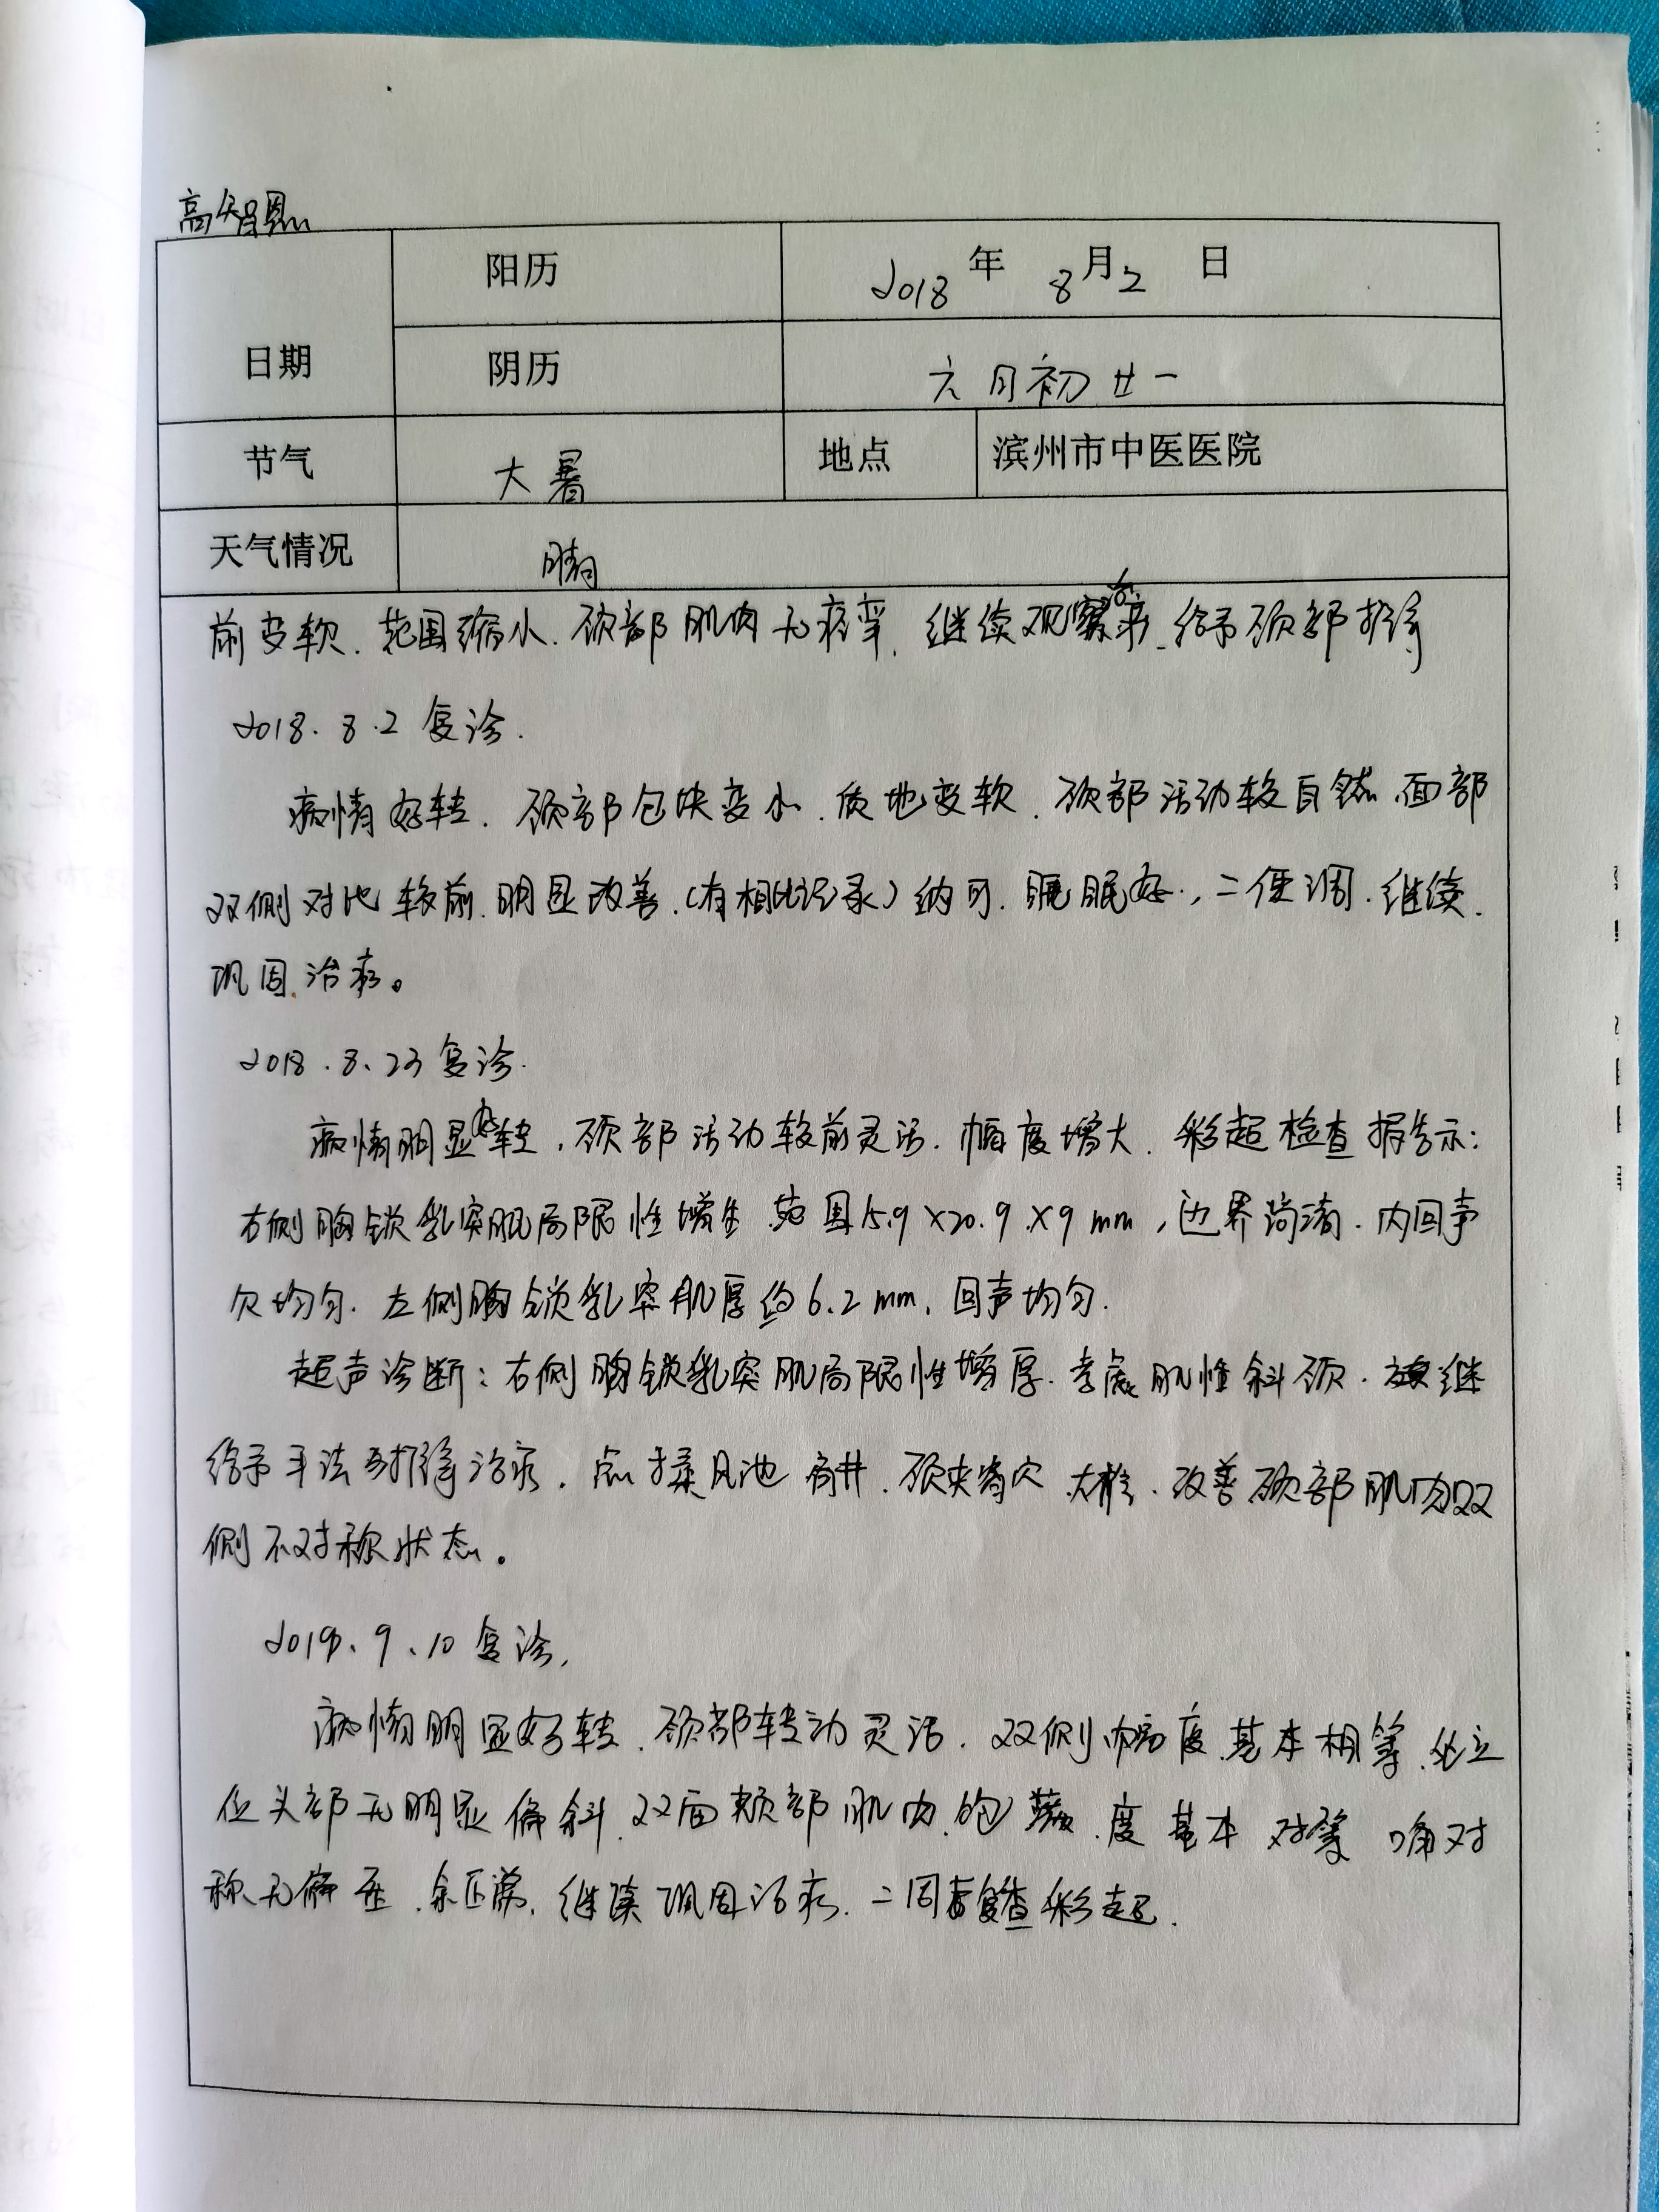 高智恩
阳历 2018年 8月2日
日期 阴历 六月初廿一
节气 大暑 地点 滨州市中医医院
天气情况 晴
前变软.范围缩小.颈部肌肉无痉挛.继续观察治疗.给予颈部推拿
2018.8.2复诊.
病情好转.颈部包块变小.质地变软.颈部活动较自然.面部
双侧对比较前.明显改善.(有相比记录)纳可.睡眠好,二便调.继续.
巩固治疗。
2018.8.23复诊.
病情明显好转,颈部活动较前灵活.幅度增大.彩超检查报告示:
右侧胸锁乳突肌局限性增生.范围15.9×20.9×9mm,边界尚清.内回声
欠均匀.左侧胸锁乳突肌厚约6.2mm,回声均匀.
超声诊断:右侧胸锁乳突肌局限性增厚.考虑肌性斜颈.继
给予手法推拿治疗,点揉风池 肩井.颈夹脊穴.大椎.改善颈部肌肉双
侧不对称状态。
2019.9.10复诊,
病情明显好转.颈部转动灵活.双侧幅度基本相等.处立
位头部无明显偏斜.双面颊部肌肉.饱满.度基本对等 嘴对
称无偏歪.余正常.继续巩固治疗.二周复查彩超.